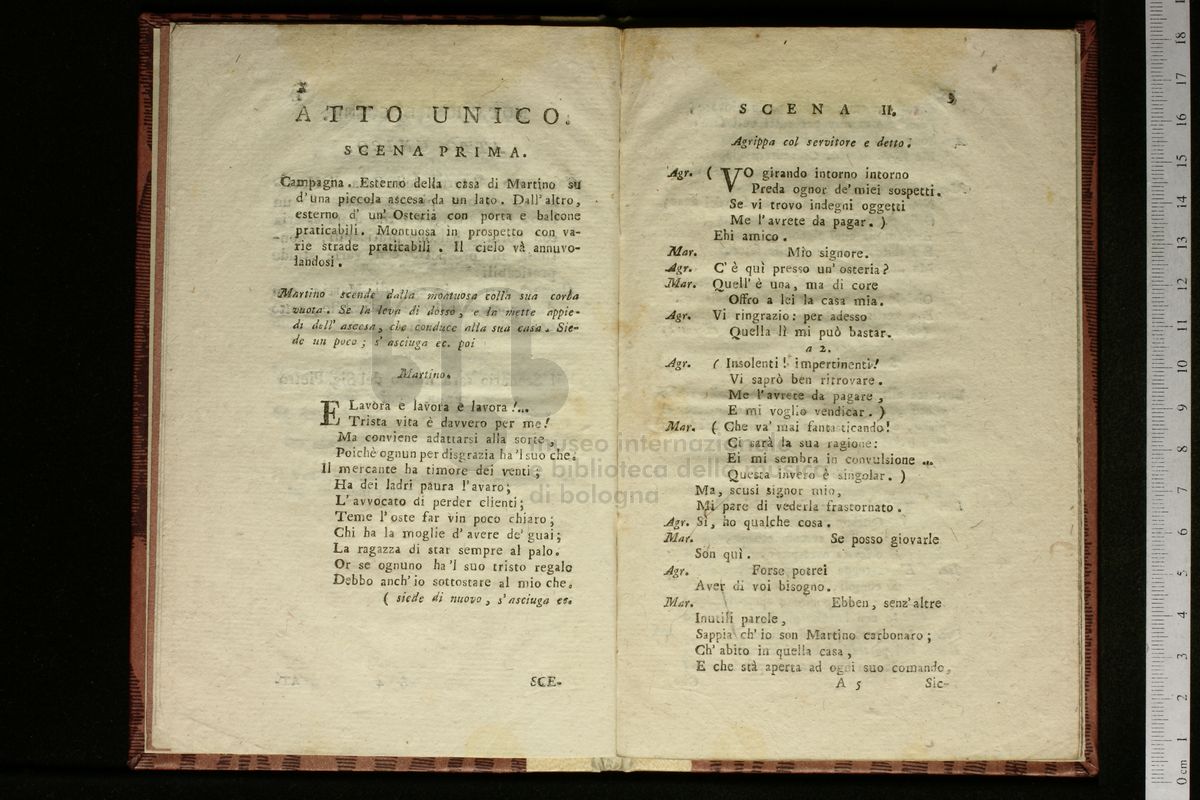 ATTO UNICO.
SCENA PRIMA.
Campagna. Esterno della casa di Martino su
d'una piccola ascesa da un lato. Dall'altro,
esterno d' un' Osteria con porta e balcone
praticabili. Montuosa in prospetto con va-
rie strade praticabili. Il cielo và annuvo-
landosi.
Martino scende dalla montuosa colla sua corba
vuota. Se la leva di dosso, e la mette appie-
di dell' ascesa, che conduce alla sua casa. Sie-
de un poco; s' asciuga ec. poi
Martino.
E Lavora e lavora e lavora!...
Trista vita è davvero per me!
Ma conviene adattarsi alla sorte,
Poichè ognun per disgrazia ha 'l suo che.
Il mercante ha timore dei venti;
Ha dei ladri paura l'avaro;
L' avvocato di perder clienti;
Teme l'oste far vin poco chiaro;
Chi ha la moglie d' avere de' guai;
La ragazza di star sempre al palo.
Or se ognuno ha 'l suo tristo regalo
Debbo anch' io sottostare al mio che.
( siede di nuovo, s' asciuga ec.
SCE-
9
SCENA II.
Agrippa col servitore e detto.
Agr. ( VO girando intorno intorno
Preda ognor de' miei sospetti.
Se vi trovo indegni oggetti
Me l' avrete da pagar. )
Ehi amico.
Mar. Mio signore.
Agr. C' è quì presso un' osteria?
Mar. Quell' è una, ma di core
Offro a lei la casa mia.
Agr. Vi ringrazio: per adesso
Quella lì mi può bastar.
a 2.
Agr. ( Insolenti! impertinenti!
Vi saprò ben ritrovare.
Me l'avrete da pagare,
E mi voglio vendicar. )
Mar. ( Che va' mai fantasticando!
Ci sarà la sua ragione:
Ei mi sembra in convulsione ...
Questa invero è singolar. )
Ma, scusi signor mio,
Mi pare di vederla frastornato.
Agr. Sì, ho qualche cosa.
Mar. Se posso giovarle
Son quì.
Agr. Forse potrei
Aver di voi bisogno.
Mar. Ebben, senz' altre
Inutili parole,
Sappia ch' io son Martino carbonaro;
Ch' abito in quella casa,
E che stà aperta ad ogni suo comando,
A 5 Sic-
museo internazionale
e biblioteca della musica
di bologna
0 cm 1 2 3 4 5 6 7 8 9 10 11 12 13 14 15 16 17 18